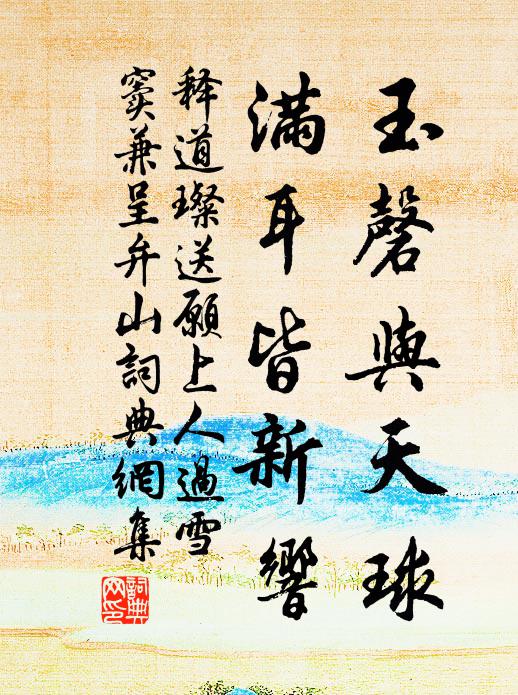 玉磬與天球
滿耳皆新響
释道璨送願上人過雪
竇兼呈弁山詞典網集
詞典网印